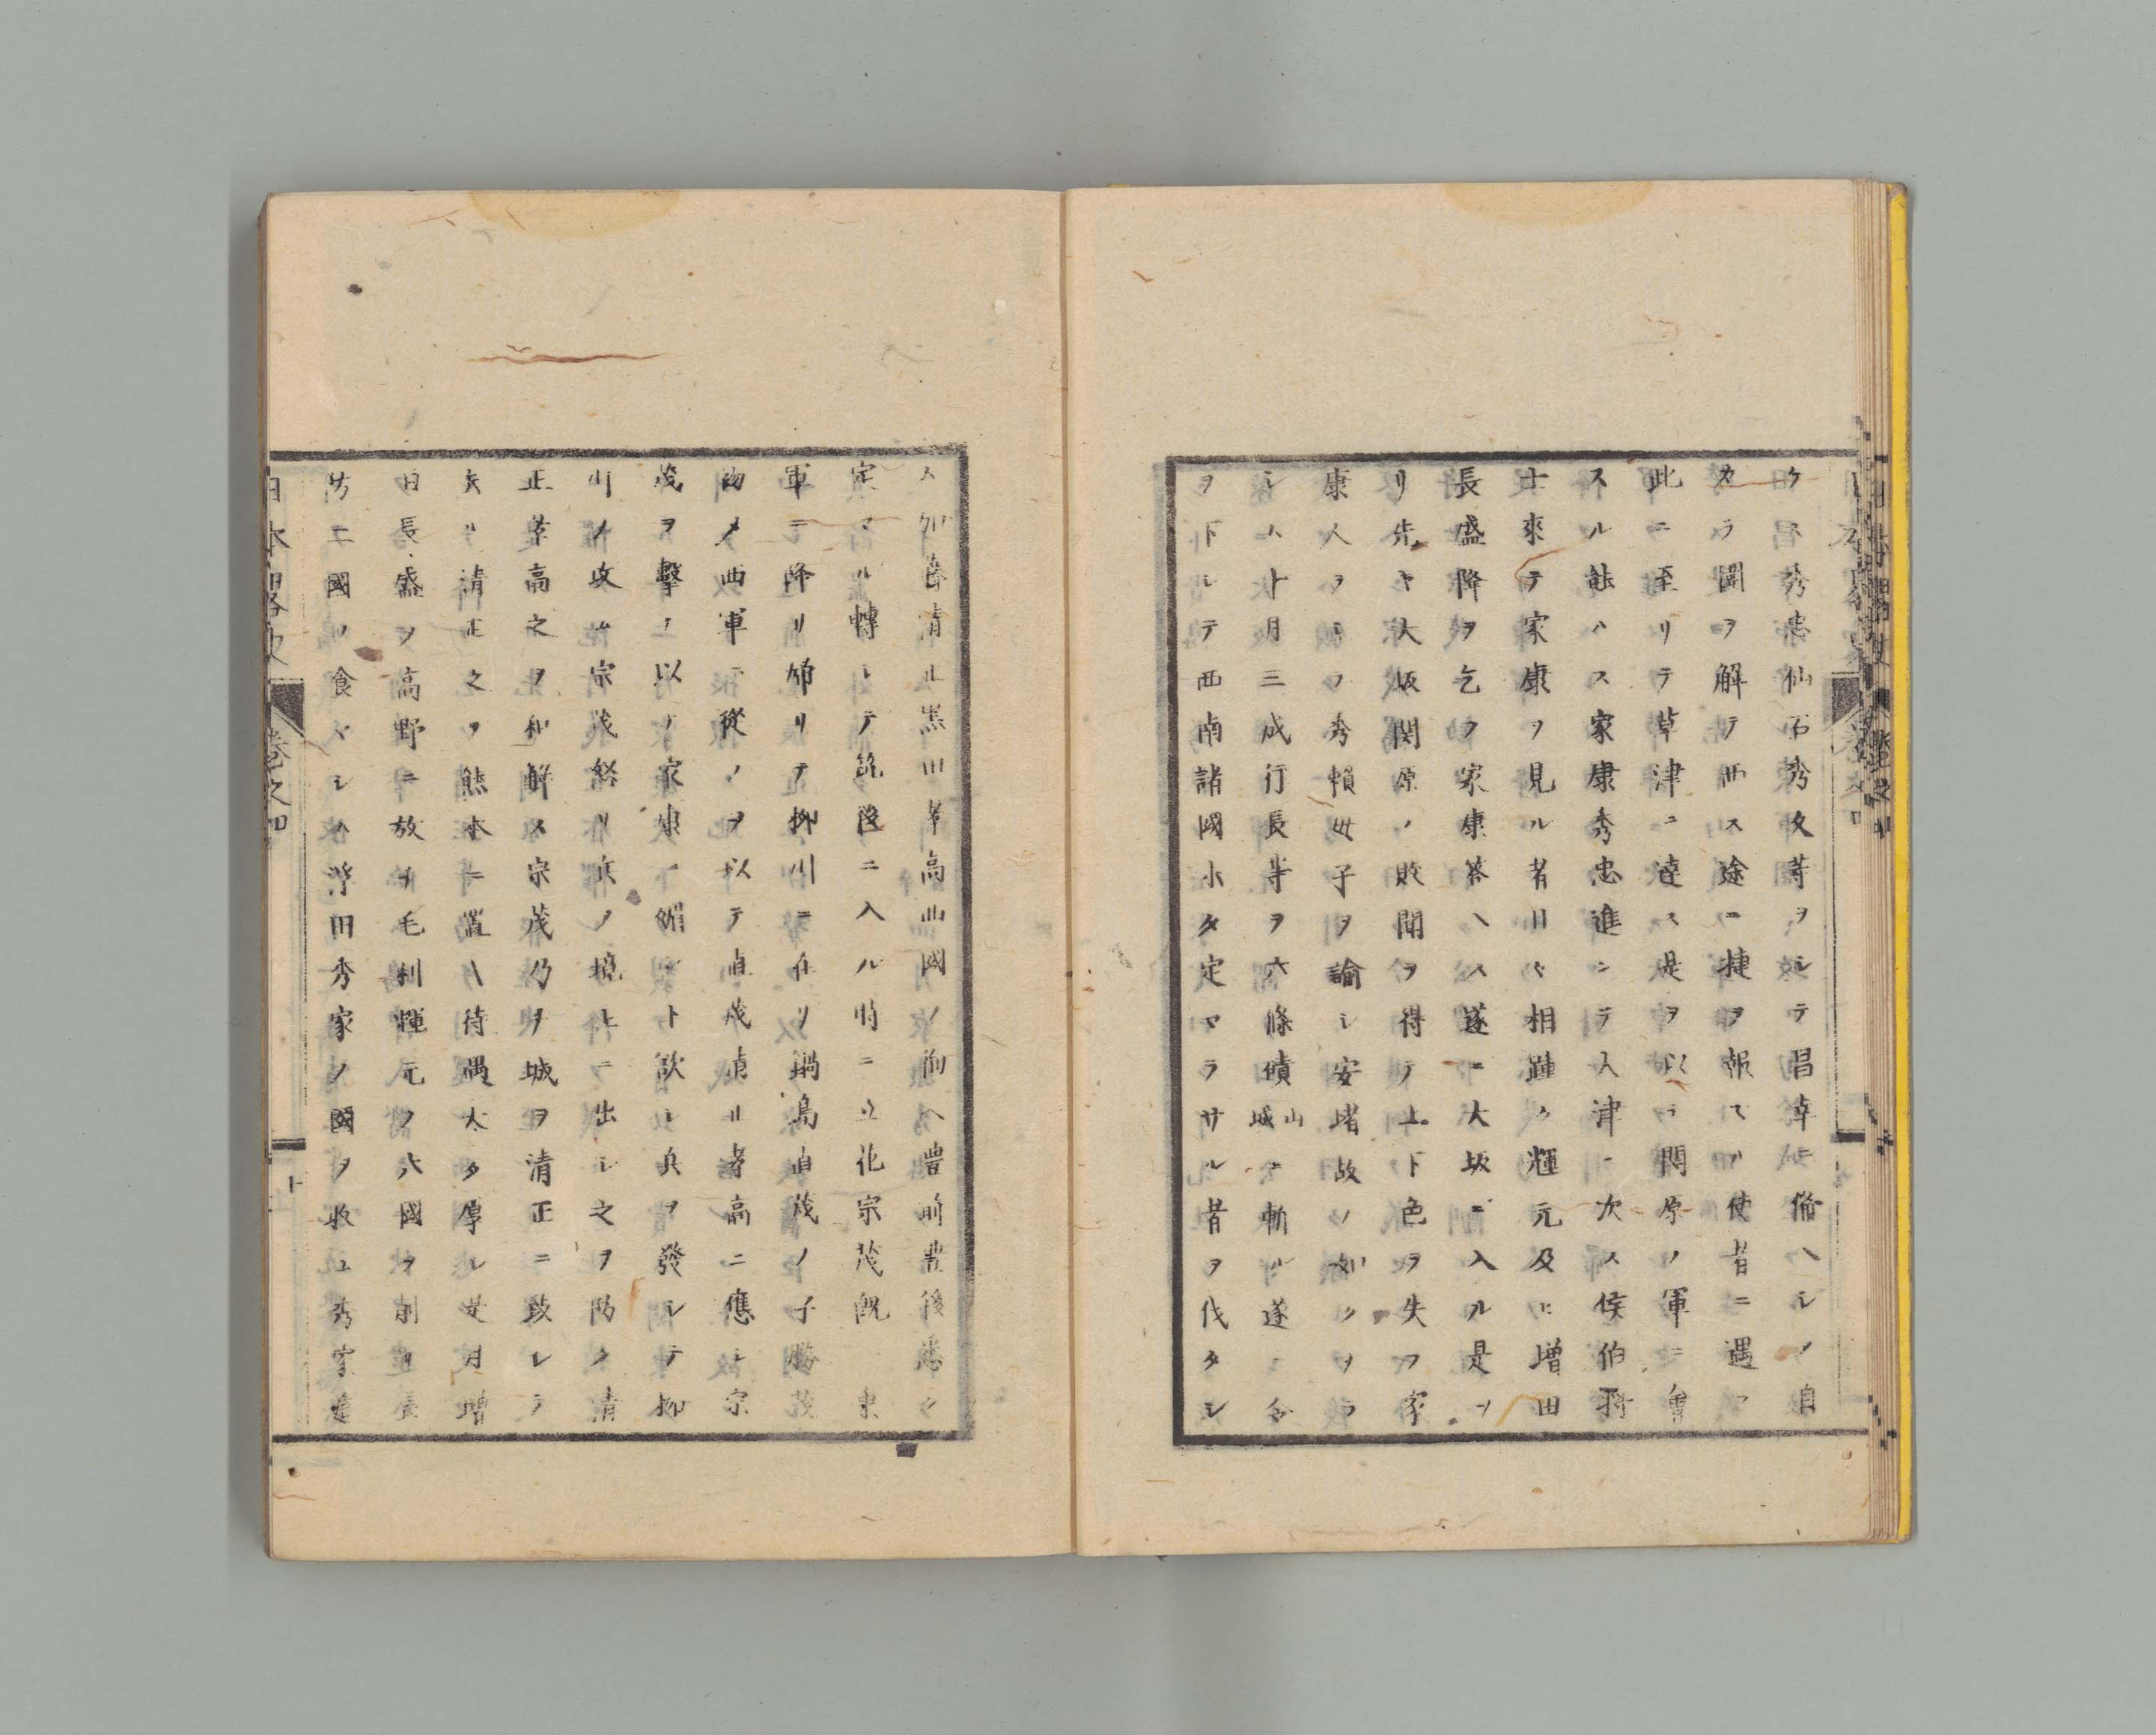 ケ ス秀忠仙石秀久等ヲシテ昌幸ニ備ヘシメ自
カラ圍ヲ解テ西ス途ニ捷ヲ報スル使者ニ遇フ
此ニ至リテ草津ニ達ス是ヲ以テ関原ノ軍ニ會
スル能ハス家康秀忠進ンテ大津ニ次ス侯伯將
士來テ家康ヲ見ル者日々相踵ク輝元及ヒ増田
長盛降ヲ乞フ家康答ヘス遂ニ大坂ニ入ル是ヨ
リ先キ大坂関原ノ敗聞ヲ得テ上下色ヲ失フ家
康人ヲシテ秀頼母子ヲ諭シ安堵故ノ如クナラ
シム十月三成行長等ヲ六條磧山城ニ斬ル遂ニ令
ヲ下シテ西南諸國未タ定マラサル者ヲ伐タシ
ム加藤清正黒田孝高西國ノ前ヘ豊前豊後悉ク
定マル轉シテ筑後ニ入ル時ニ立花宗茂既 東
軍ニ降リ帰リテ柳川ニ在リ鍋島直茂ノ子勝茂
初メ西軍ニ從フヲ以テ直茂清正孝高ニ應シ宗
茂ヲ擊テ以テ家康ニ媚ント欲シ兵ヲ發シテ柳
川ヲ攻ム宗茂怒リ兵ヲ境上ニ出シ之ヲ防ク清
正孝高之ヲ和解ス宗茂乃チ城ヲ清正ニ致シテ
去ル清正之ヲ熊本ニ置ク待遇太タ厚シ是月増
田長盛ヲ高野ニ放チ毛利輝元ノ六國ヲ削リ長
防二國ヲ食マシム浮田秀家ノ國ヲ収ム秀家
日本略史 巻之四 十